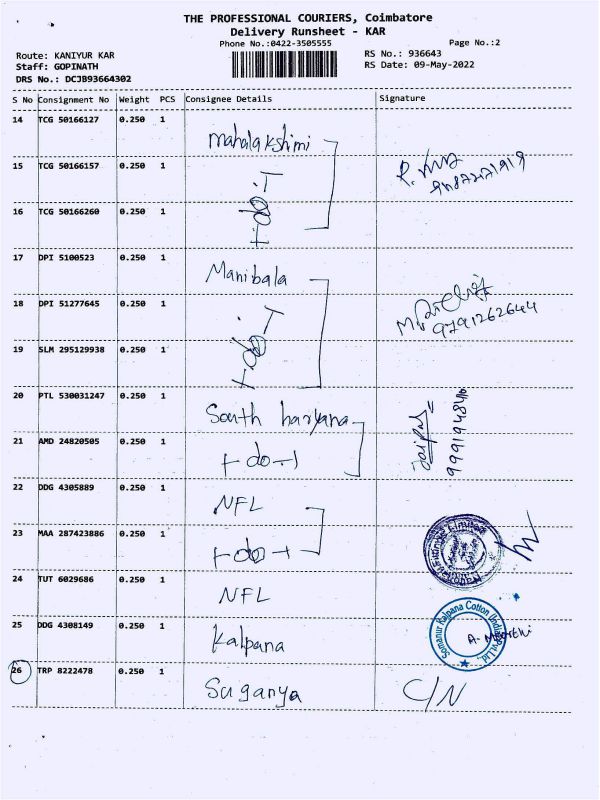 THE PROFESSIONAL COURIERS, Coimbatore
Delivery Runsheet - KAR
Phone No.:0422-3505555
Page No.:2
Route: KANIYUR KAR
RS No.: 936643
Staff: GOPINATH
RS Date: 09-May-2022
DRS No.: DCJB93664302
S No Consignment No Weight PCS Consignee Details Signature
14 TCG 50166127 0.250 1 Mahalakshimi
15 TCG 50166157 0.250 1 -do- R.
16 TCG 50166260 0.250 1
17 DPI 5100523 0.250 1 Manibala
18 DPI 51277645 0.250 1 -do- 9791262644
19 SLM 295129938 0.250 1
20 PTL 530031247 0.250 1 South haryana
21 AMD 24820505 0.250 1 -do-
22 DDG 4305889 0.250 1 NFL
23 MAA 287423886 0.250 1 -do-
24 TUT 6029686 0.250 1 NFL
25 DDG 4308149 0.250 1 Kalpana
Somanur Kalpana Cotton (India) Pvt. Ltd.,
26 TRP 8222478 0.250 1 Suganya C/N